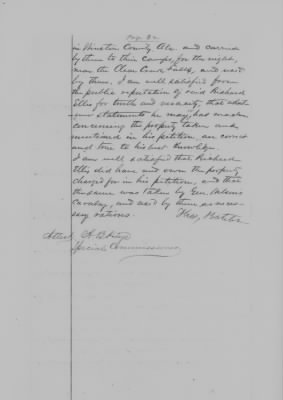 Page 32
in Winston County Ala. and carried
by them to their camps, for the night,
near the Clear Creek Falls, and used
by them. I am well satisfied from
the public reputation of said Richard
Ellis for truth and veracity, that what-
ever statements he may has made
concerning the property taken and
mentioned in his petition are correct
and true to his best knowledge.
I am well satisfied that Richard
Ellis did have and own the property
charged for in his petition, and that
the same was taken by Gen. Wilson's
Cavalry, and used by them as neces-
sary rations.
Attest
Special Commissioner